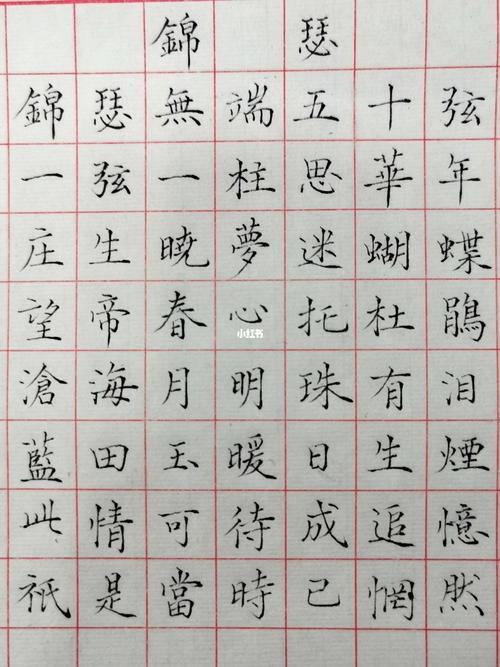 錦瑟
錦瑟無端五十弦
一弦一柱思華年
庄生曉夢迷蝴蝶
望帝春心托杜鵑
滄海月明珠有泪
藍田玉暖日生煙
此情可待成追憶
祇是當時已惘然
小红书